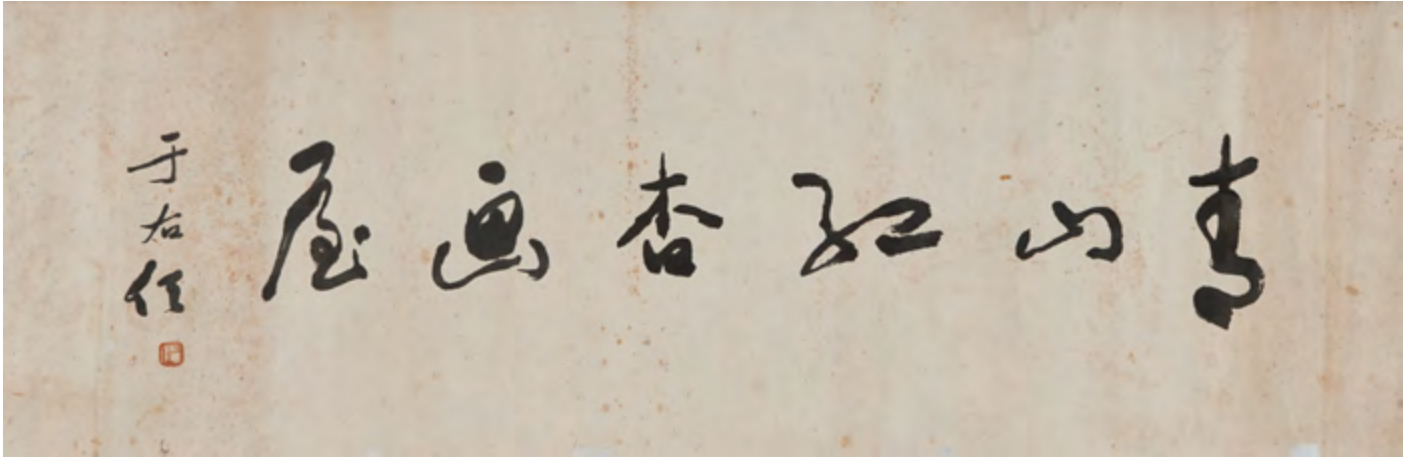 青山红杏画屋
于右任